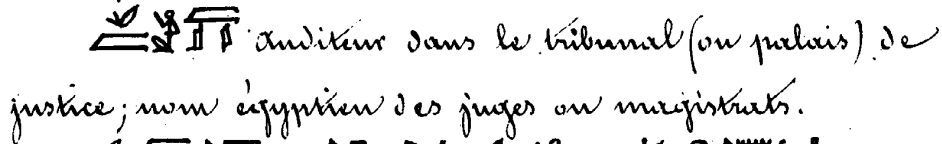 auditeur dans le tribunal (ou palais) de
justice; nom égyptien des juges ou magistrats.